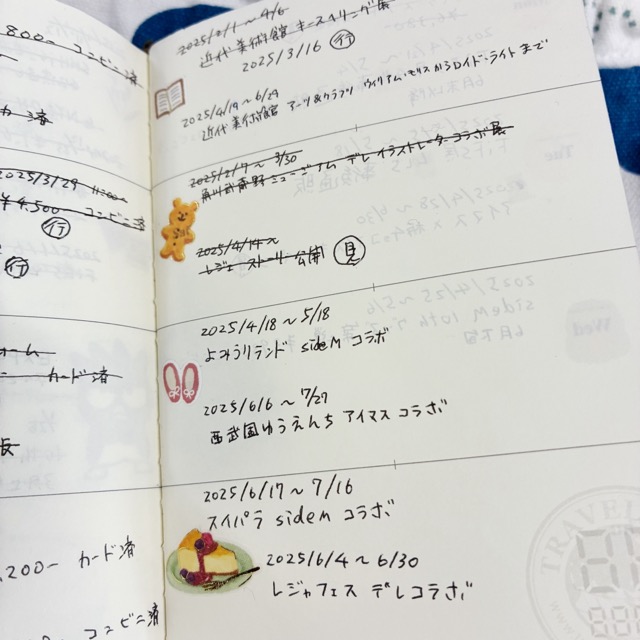 800- コンビニ済
カード済
2025/3/29
¥4,500 コンビニ済
行
行
カード済
,200- カード済
コンビニ済
2025/2/1~4/6
近代美術館 キースヘリング展
2025/3/16 行
2025/4/19~6/29
近代美術館 アーツ&クラフツ ウィリアム・モリスからロイド・ライトまで
2025/2/7~3/30
角川武蔵野ミュージアム デレ イラストレーターコラボ展
2025/4/14~
レジェ ストーリー公開 見
2025/4/18~5/18
よみうりランド sideM コラボ
2025/6/6~7/27
西武園ゆうえんち アイマス コラボ
2025/6/17~7/16
スイパラ sideM コラボ
2025/6/4~6/30
レジャフェス デレコラボ
TRAVEL